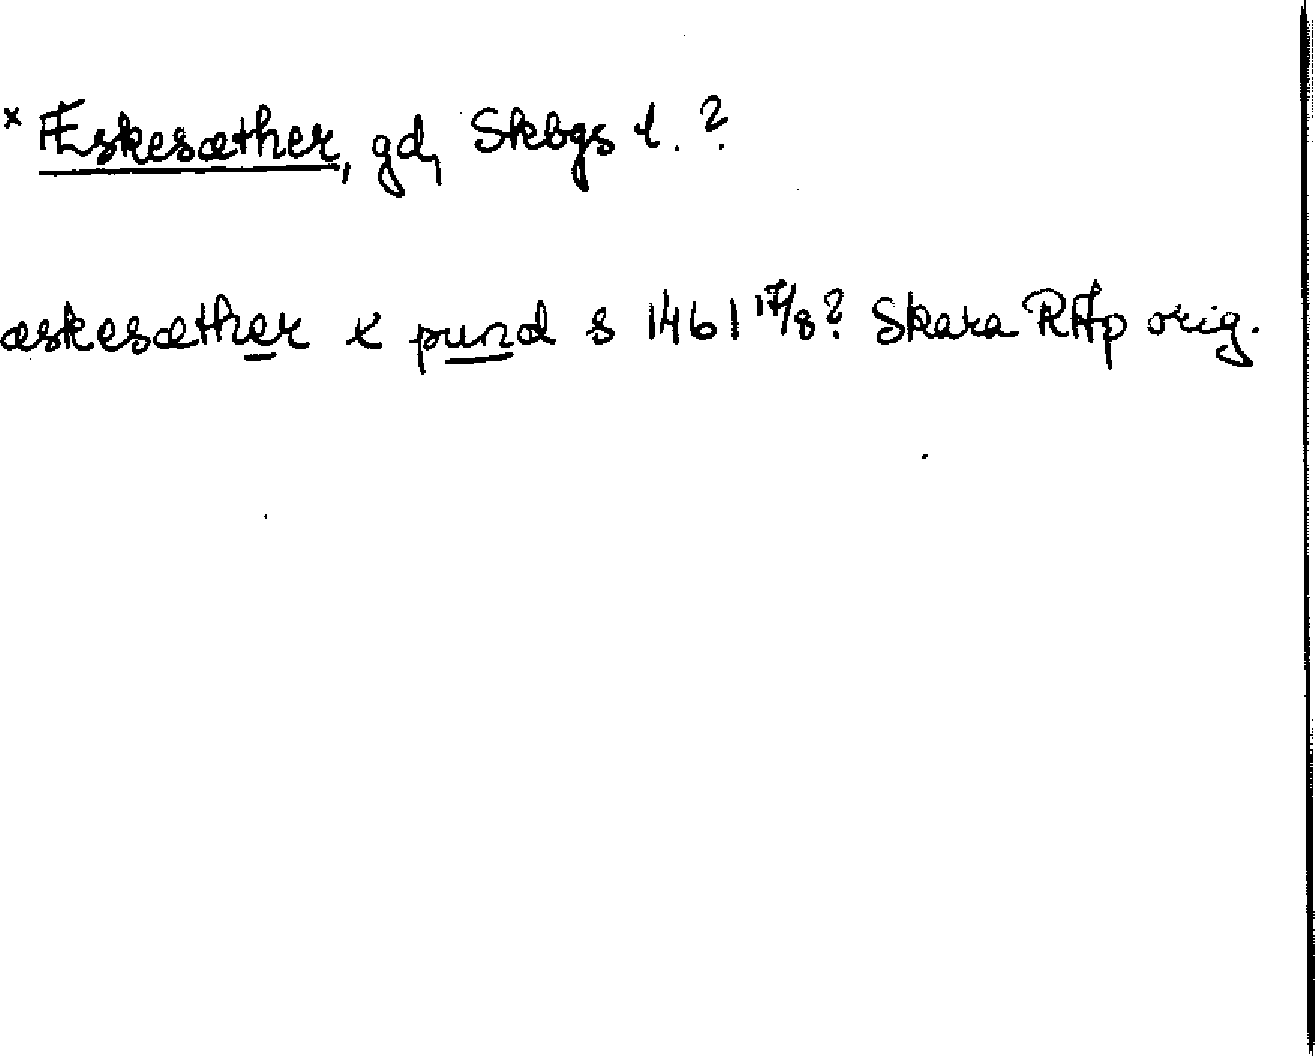 × Æskesæther, gd, Skbgs l. ?
æskesæther x pund s 1461 17/8? Skara RAp orig.